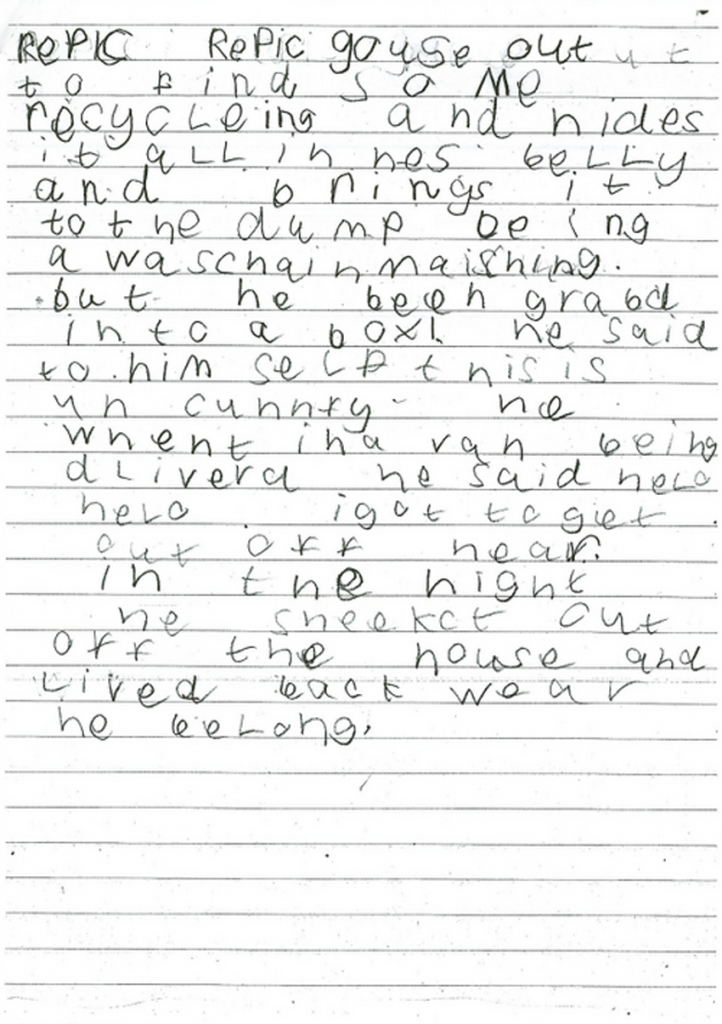 RePIC RePic gouse out ut
to find some
recycleing and hides
it all in hes belly
and brings it
to the dump being
a waschainmaishing.
but he been grabd
into a box! he said
to him self this is
un cunnfy he
whent ina van being
dliverd he said helo
helo igot to get
out off hear.
in the night
he sneekct out
off the house and
Lived back wear
he belong.